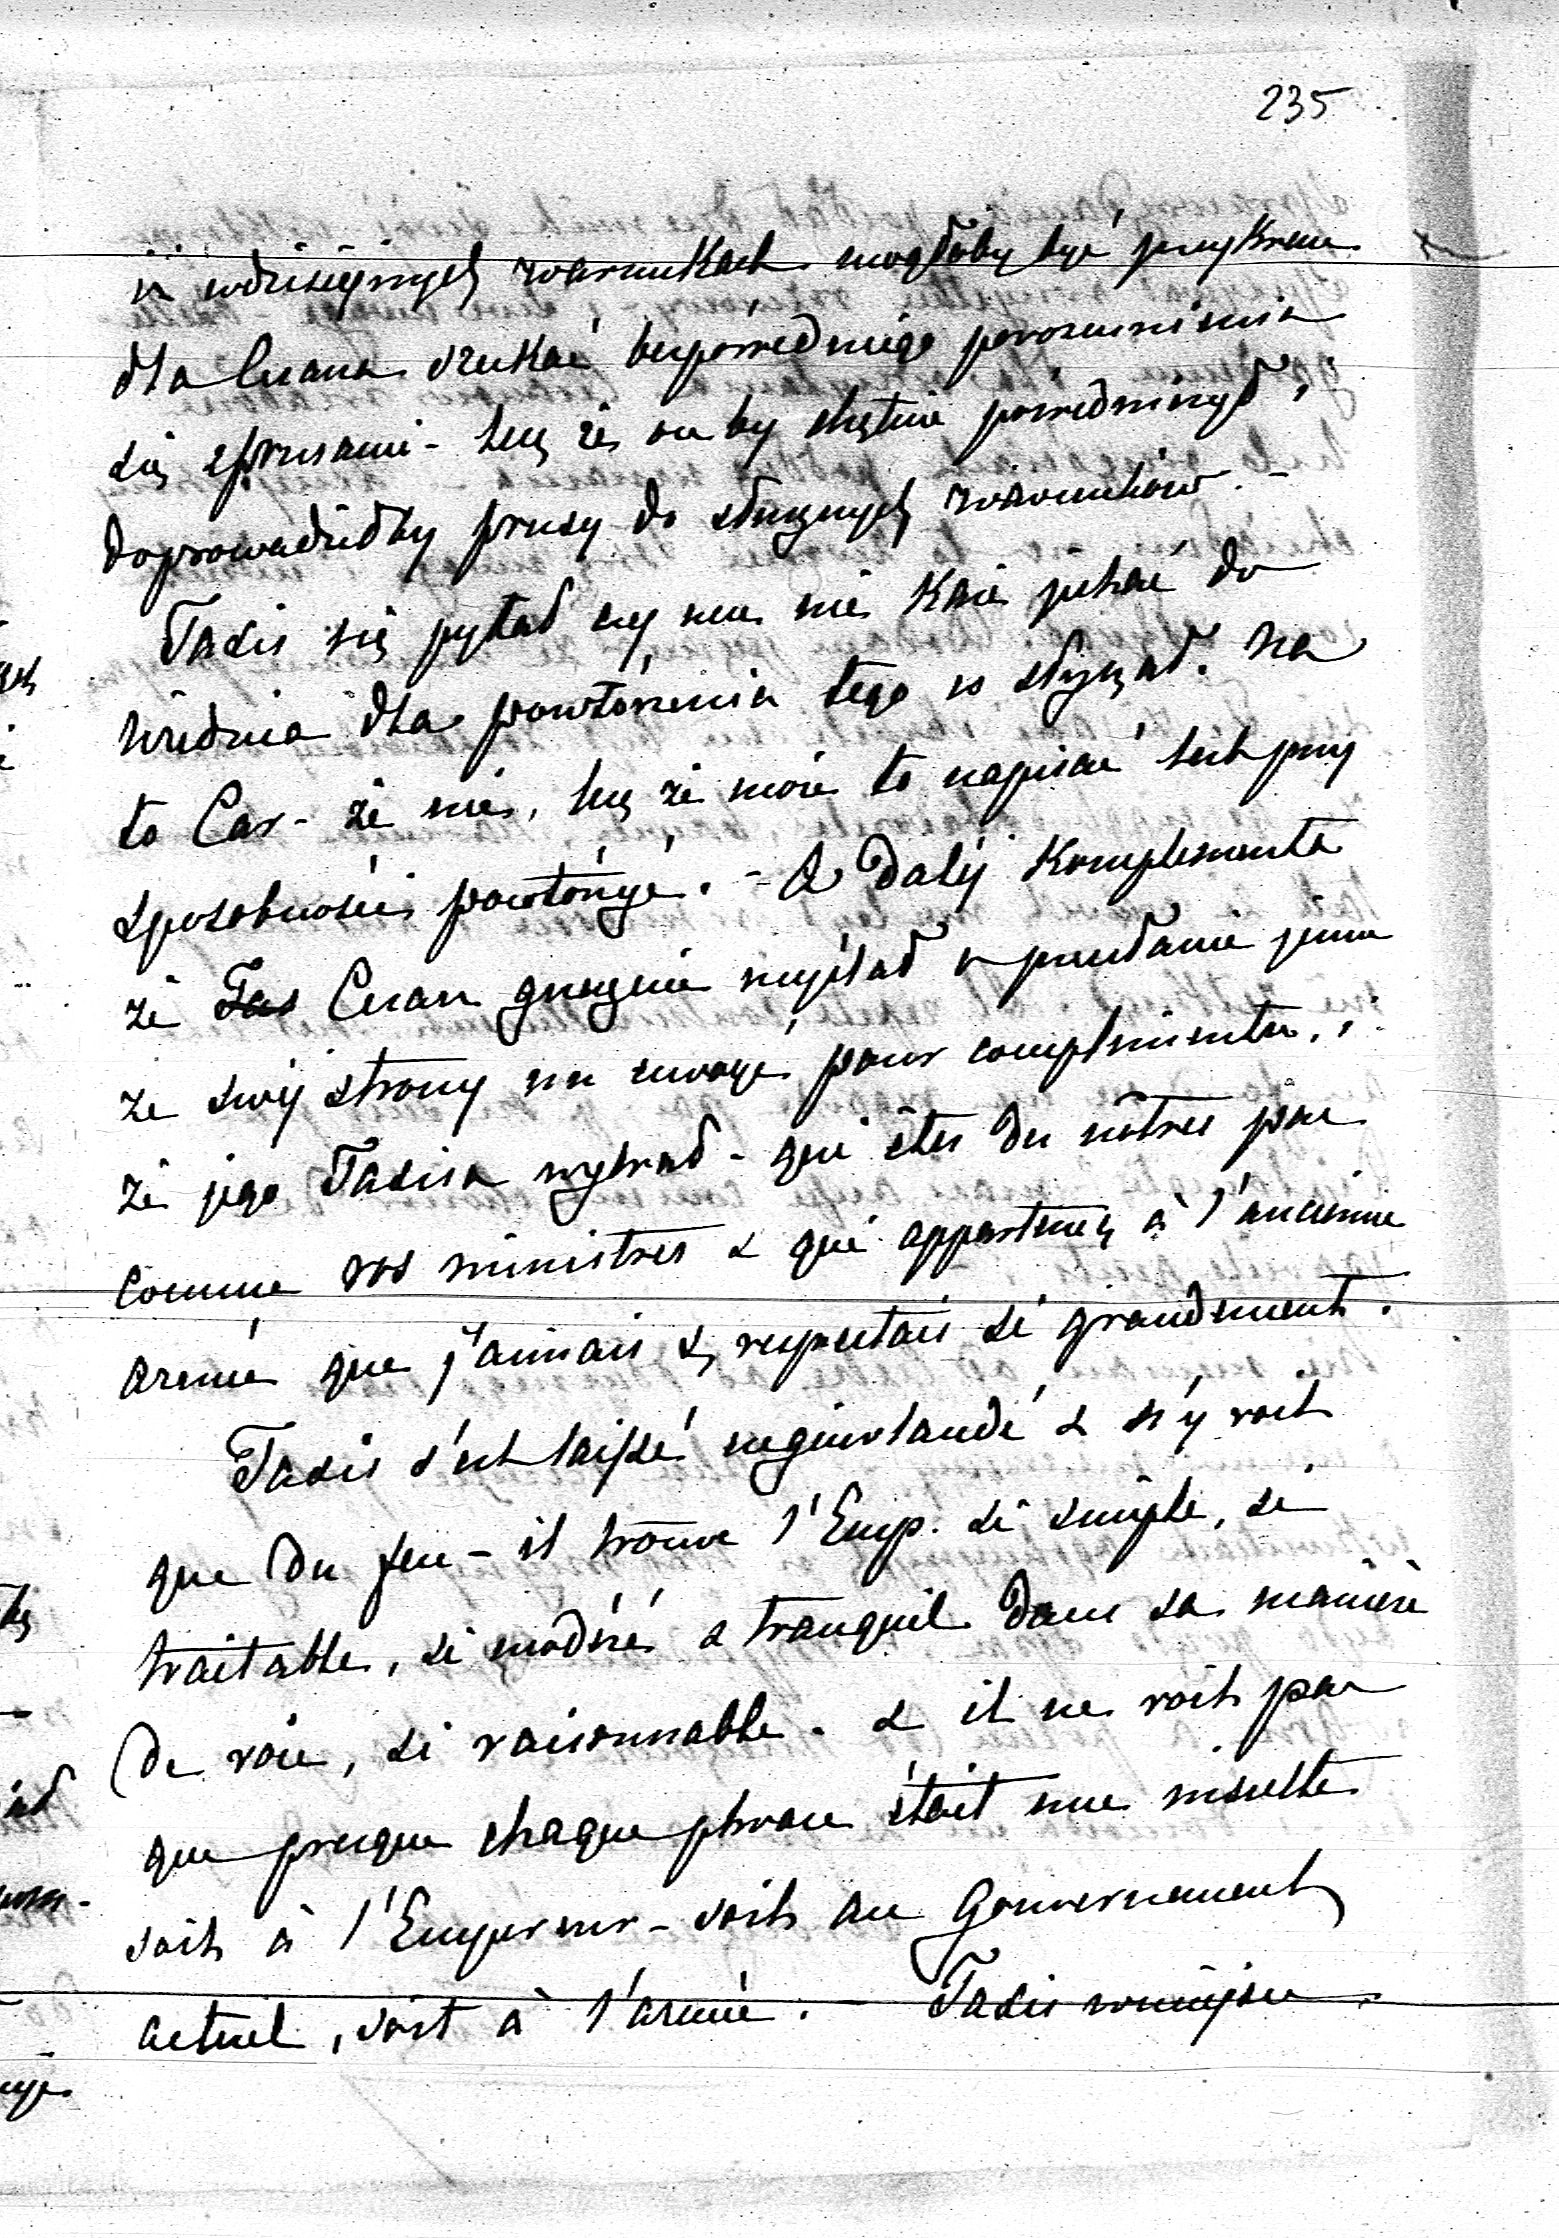 235
że w dzisiejszych warunkach mogłoby być przykrem
dla Cesarza szukać bezpośredniego porozumienia
się z Prusami - lecz że on by chętnie pośredniczył i
doprowadziłby Prusy do słusznych warunków. -
Taxis się pytał czy mu nie każe jechać do
Wiednia dla powtórzenia tego co słyszał. Na
to Car - że nie, lecz że może to napisać lub przy
sposobności powtórzyć. - A dalej komplementa
że Tas Cesarz grzecznie myślał o posłanie jemu
ze swéj strony un envoyé pour complimenter, i
że jego Taxisa wybrał - qui êtes des nôtres par
comme vos ministres & qui appartenez à l'ancienne
armée que j'aimais & respectais si grandement.
Taxis s'est laissé enguirlandé & n'y voit
que du feu - il trouve l'Emp. si simple, si
traitable, si modéré & tranquil dans sa manière
de voir, si raisonnable. & il ne voit pas
que presque chaque phrase était une insulte
soit à l'Empereur - soit au Gouvernement
actuel, soit à l'armée. - Taxis